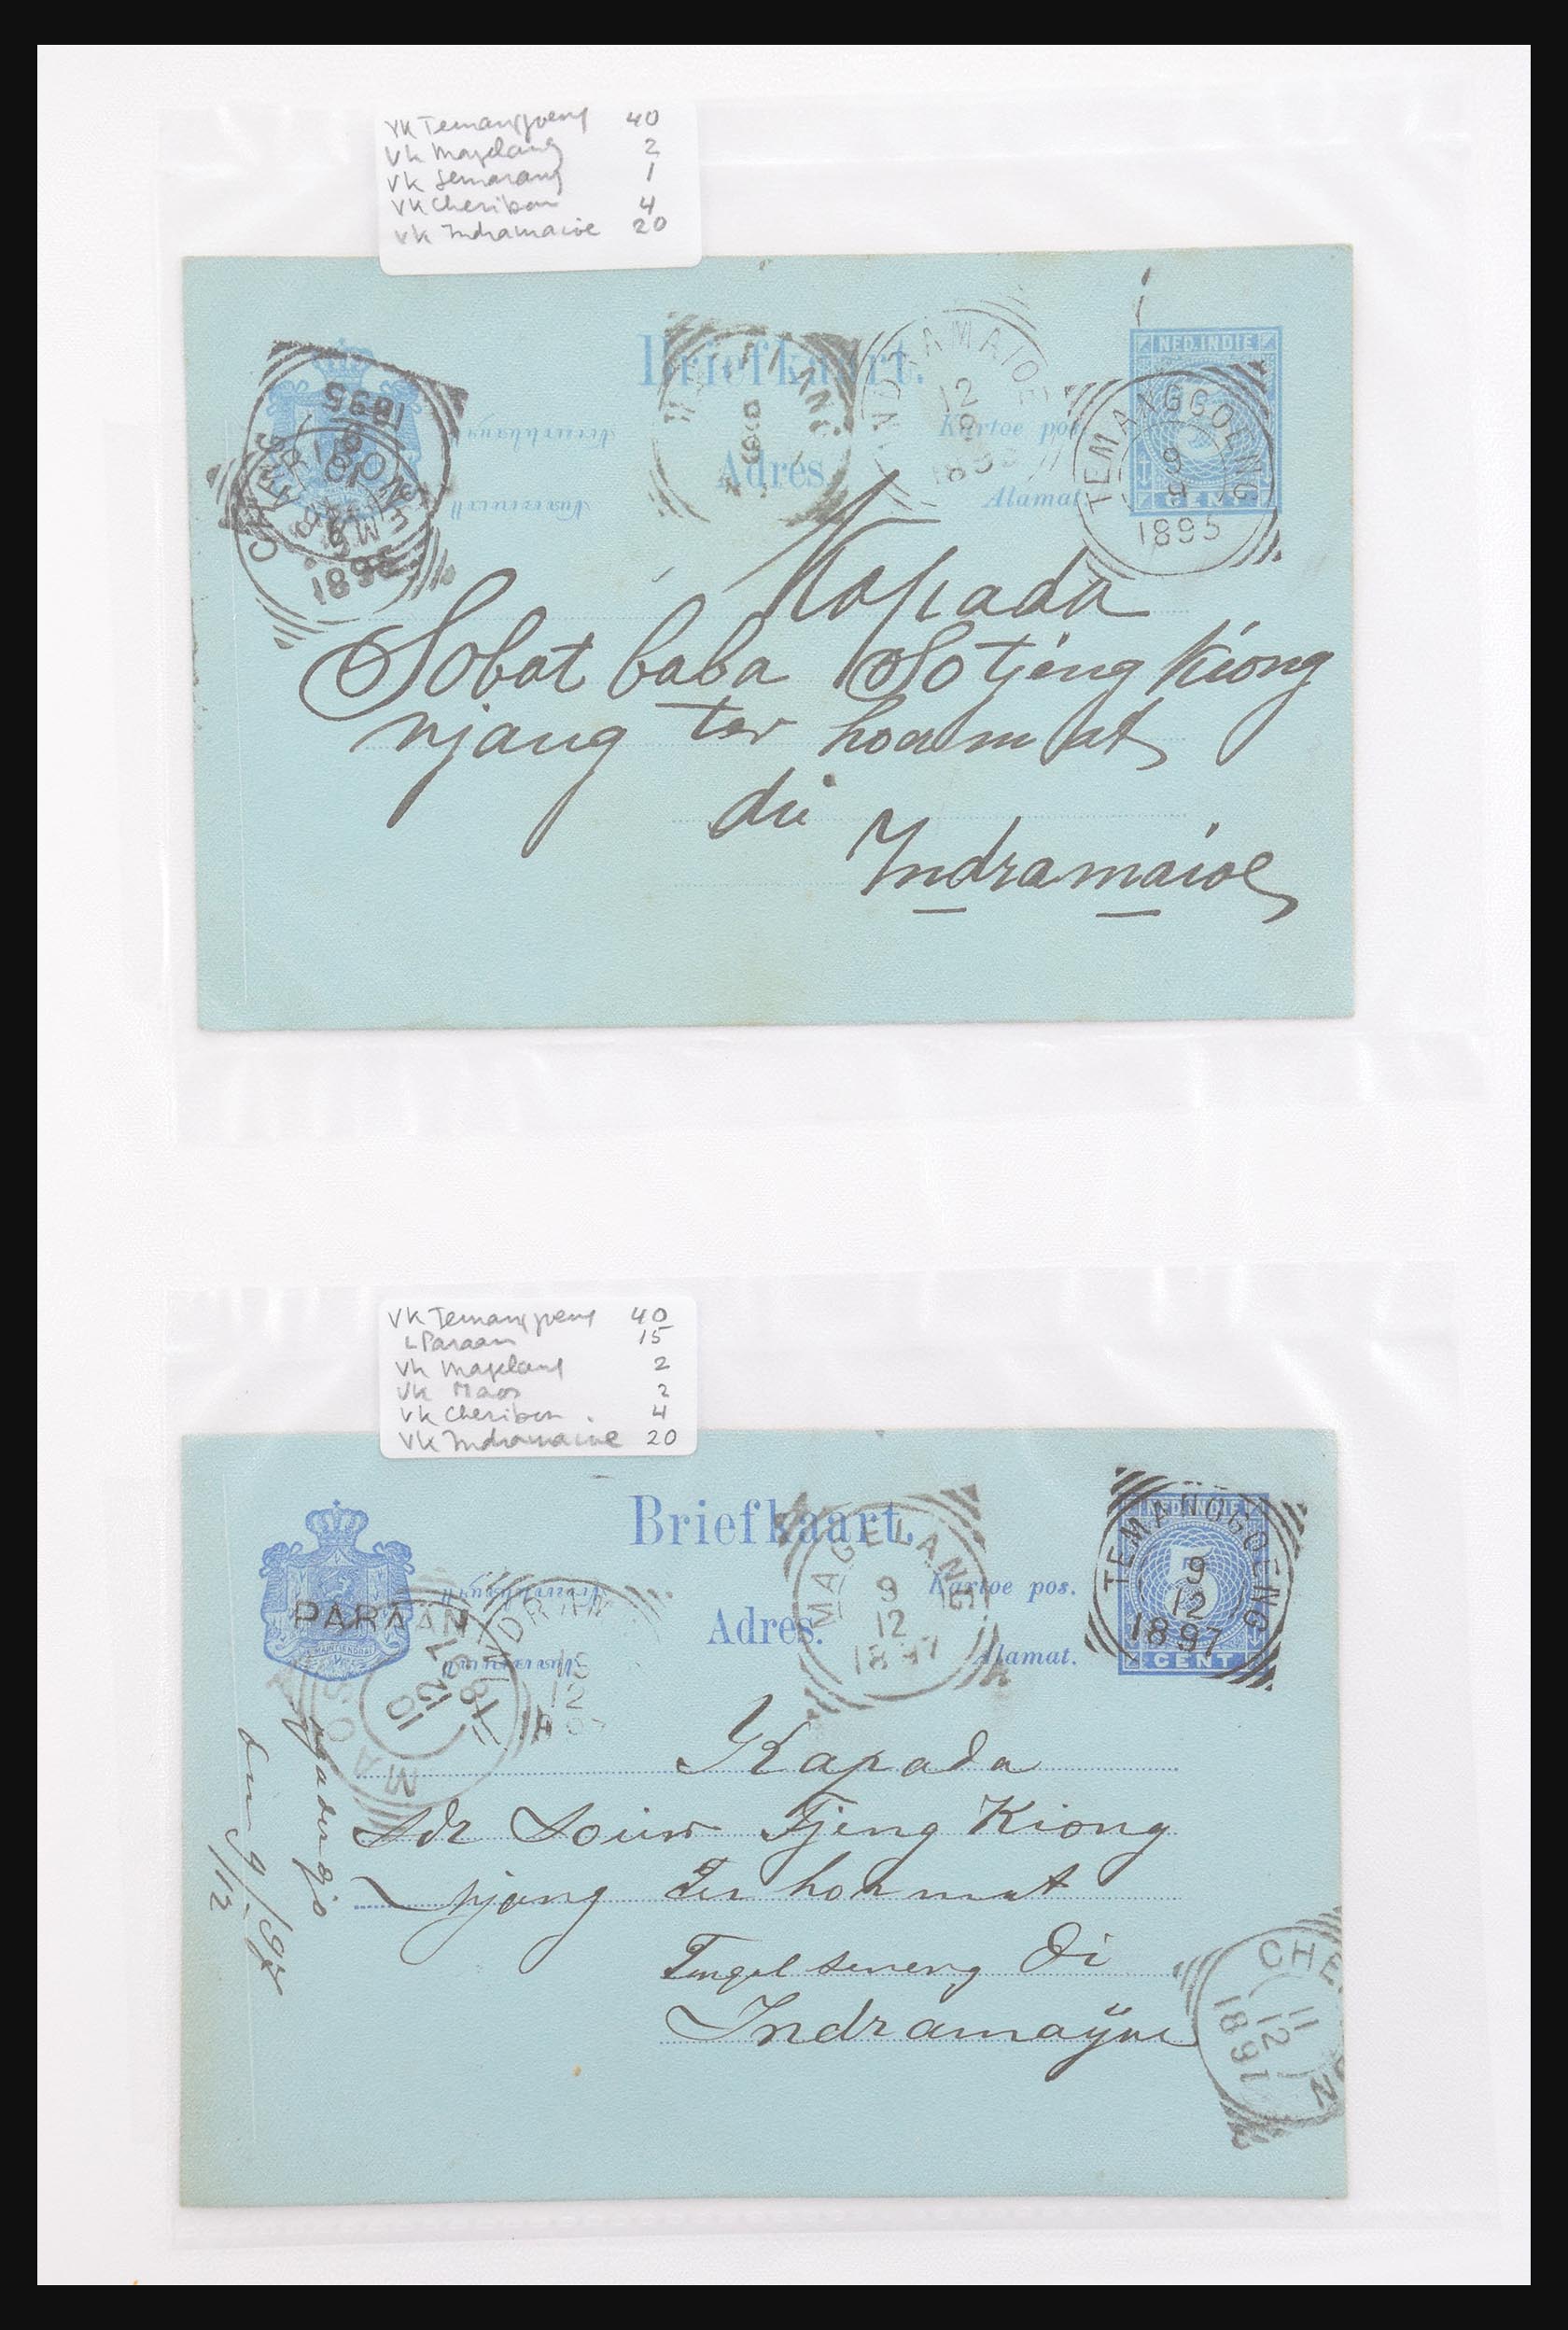 VK Temanggoeng 40
Vk Magelang 2
VK Semarang 1
VK Cheribon 4
VK Indramaioe 20
Briefkaart.
NED. INDIE
5
CENT
Kartoe pos.
Adres.
Alamat.
TEMANGGOENG
9
9
1895
INDRAMAIOE
12
9
1895
1895
Kapada
Sobat baba So tjeng Kiong
njang ter hoermat
di
Indramaioe
VK Temanggoeng 40
L Paraan 15
Vk Magelang 2
VK Maos 2
VK Cheribon 4
VK Indramaioe 20
Briefkaart.
NED. INDIE
5
CENT
Kartoe pos.
Adres.
Alamat.
TEMANGGOENG
9
12
1897
MAGELANG
9
12
1897
PARAAN
MAOS
10
12
1897
INDRAM
CHE
11
12
1897
Kapada
Sdr Souw Tjeng Kiong
njang Ter hormat
Tingal seneng di
Indramayoe
9/12 97